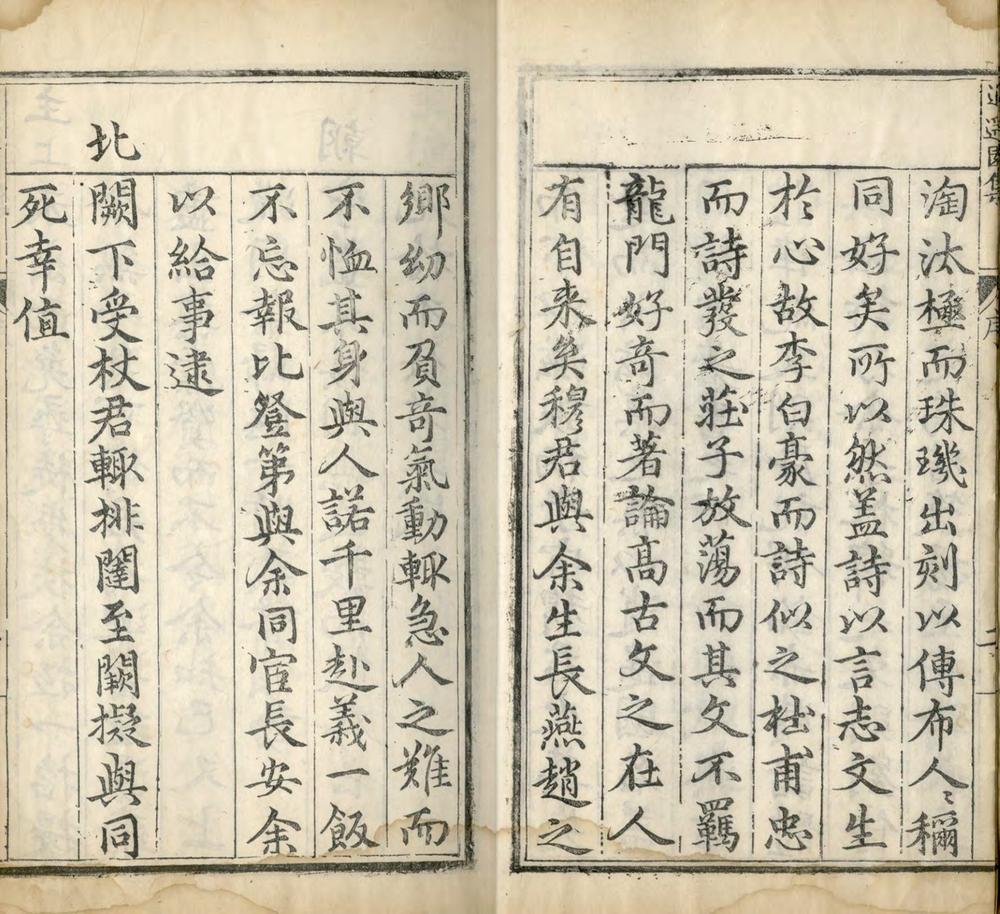 逍遥園集
序
二
淘汰極而珠璣出刻以傳布人〻稱
同好矣所以然盖詩以言志文生
扵心故李白豪而詩似之杜甫忠
而詩發之莊子放蕩而其文不羈
龍門好竒而著論高古文之在人
有自来矣穆君與余生長燕趙之
鄉㓜而負竒氣動輙急人之難而
不恤其身與人諾千里赴義一飯
不忘報比登第與余同宦長安余
以給事逮
北
闕下受杖君輙排闥至闕擬與同
死幸值